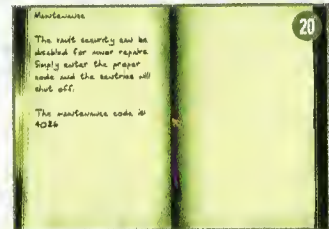 Maintenance
The vault security can be
disabled for minor repairs
Simply enter the proper
code and the sentries will
shut off.
The maintenance code is
4026
20